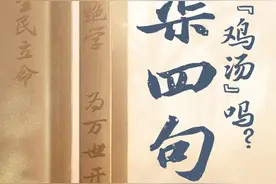 『鸡汤』吗？
渠四句
绝学 为万世开
民立命